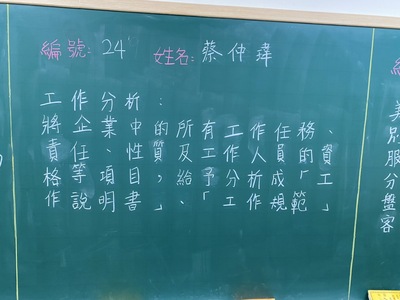 編號：24 姓名：蔡仲瑋
工作分析：
將企業中的所有工作任務、
責任、性質及工作人員的資
格等項目，給予分析成「工
作說明書」、「工作規範」
美
別
服
分
盤
客